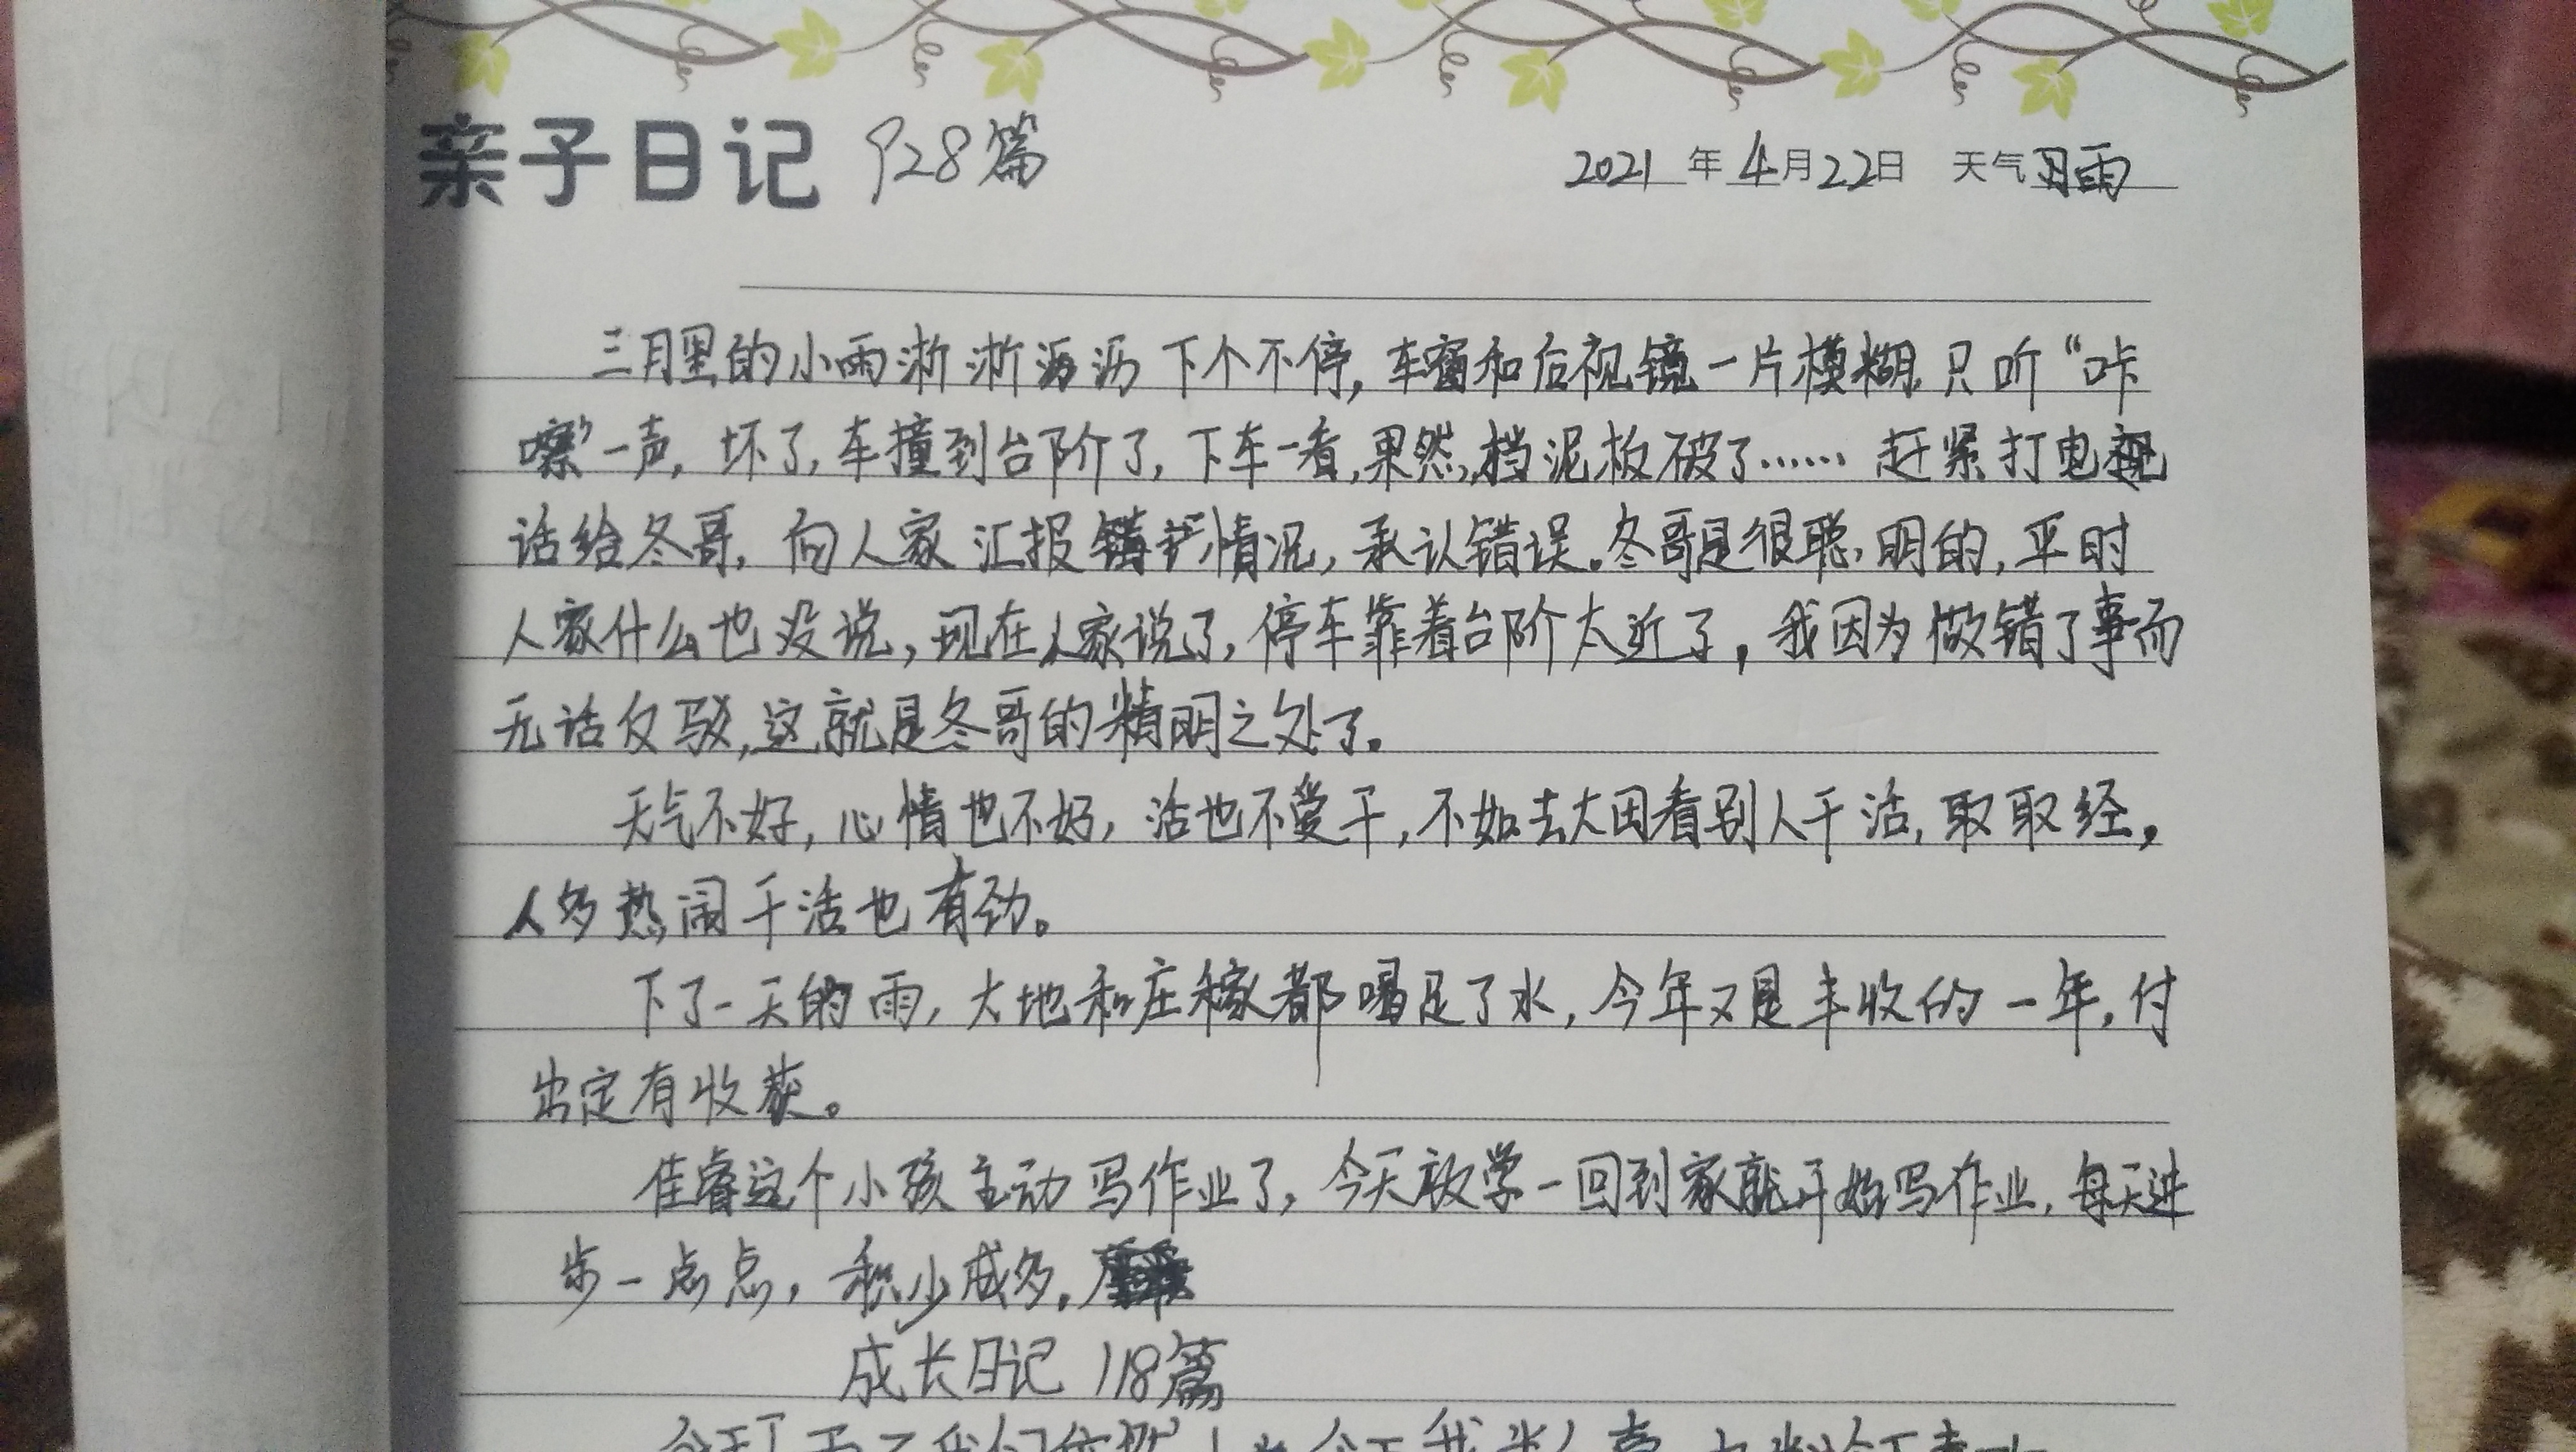 亲子日记 928篇
2021年4月22日 天气 雨
三月里的小雨淅淅沥沥下个不停,车窗和后视镜一片模糊,只听“咔
嚓”一声,坏了,车撞到台阶了,下车一看,果然,挡泥板破了……赶紧打电
话给冬哥,向人家汇报情况,承认错误。冬哥是很聪明的,平时
人家什么也没说,现在人家说了,停车靠着台阶太近了,我因为做错了事而
无话反驳,这就是冬哥的精明之处了。
天气不好,心情也不好,活也不爱干,不如去大田看别人干活,取取经,
人多热闹干活也有劲。
下了一天的雨,大地和庄稼都喝足了水,今年又是丰收的一年,付
出定有收获。
佳睿这个小孩主动写作业了,今天放学一回到家就开始写作业,每天进
步一点点,积少成多。
成长日记 118篇